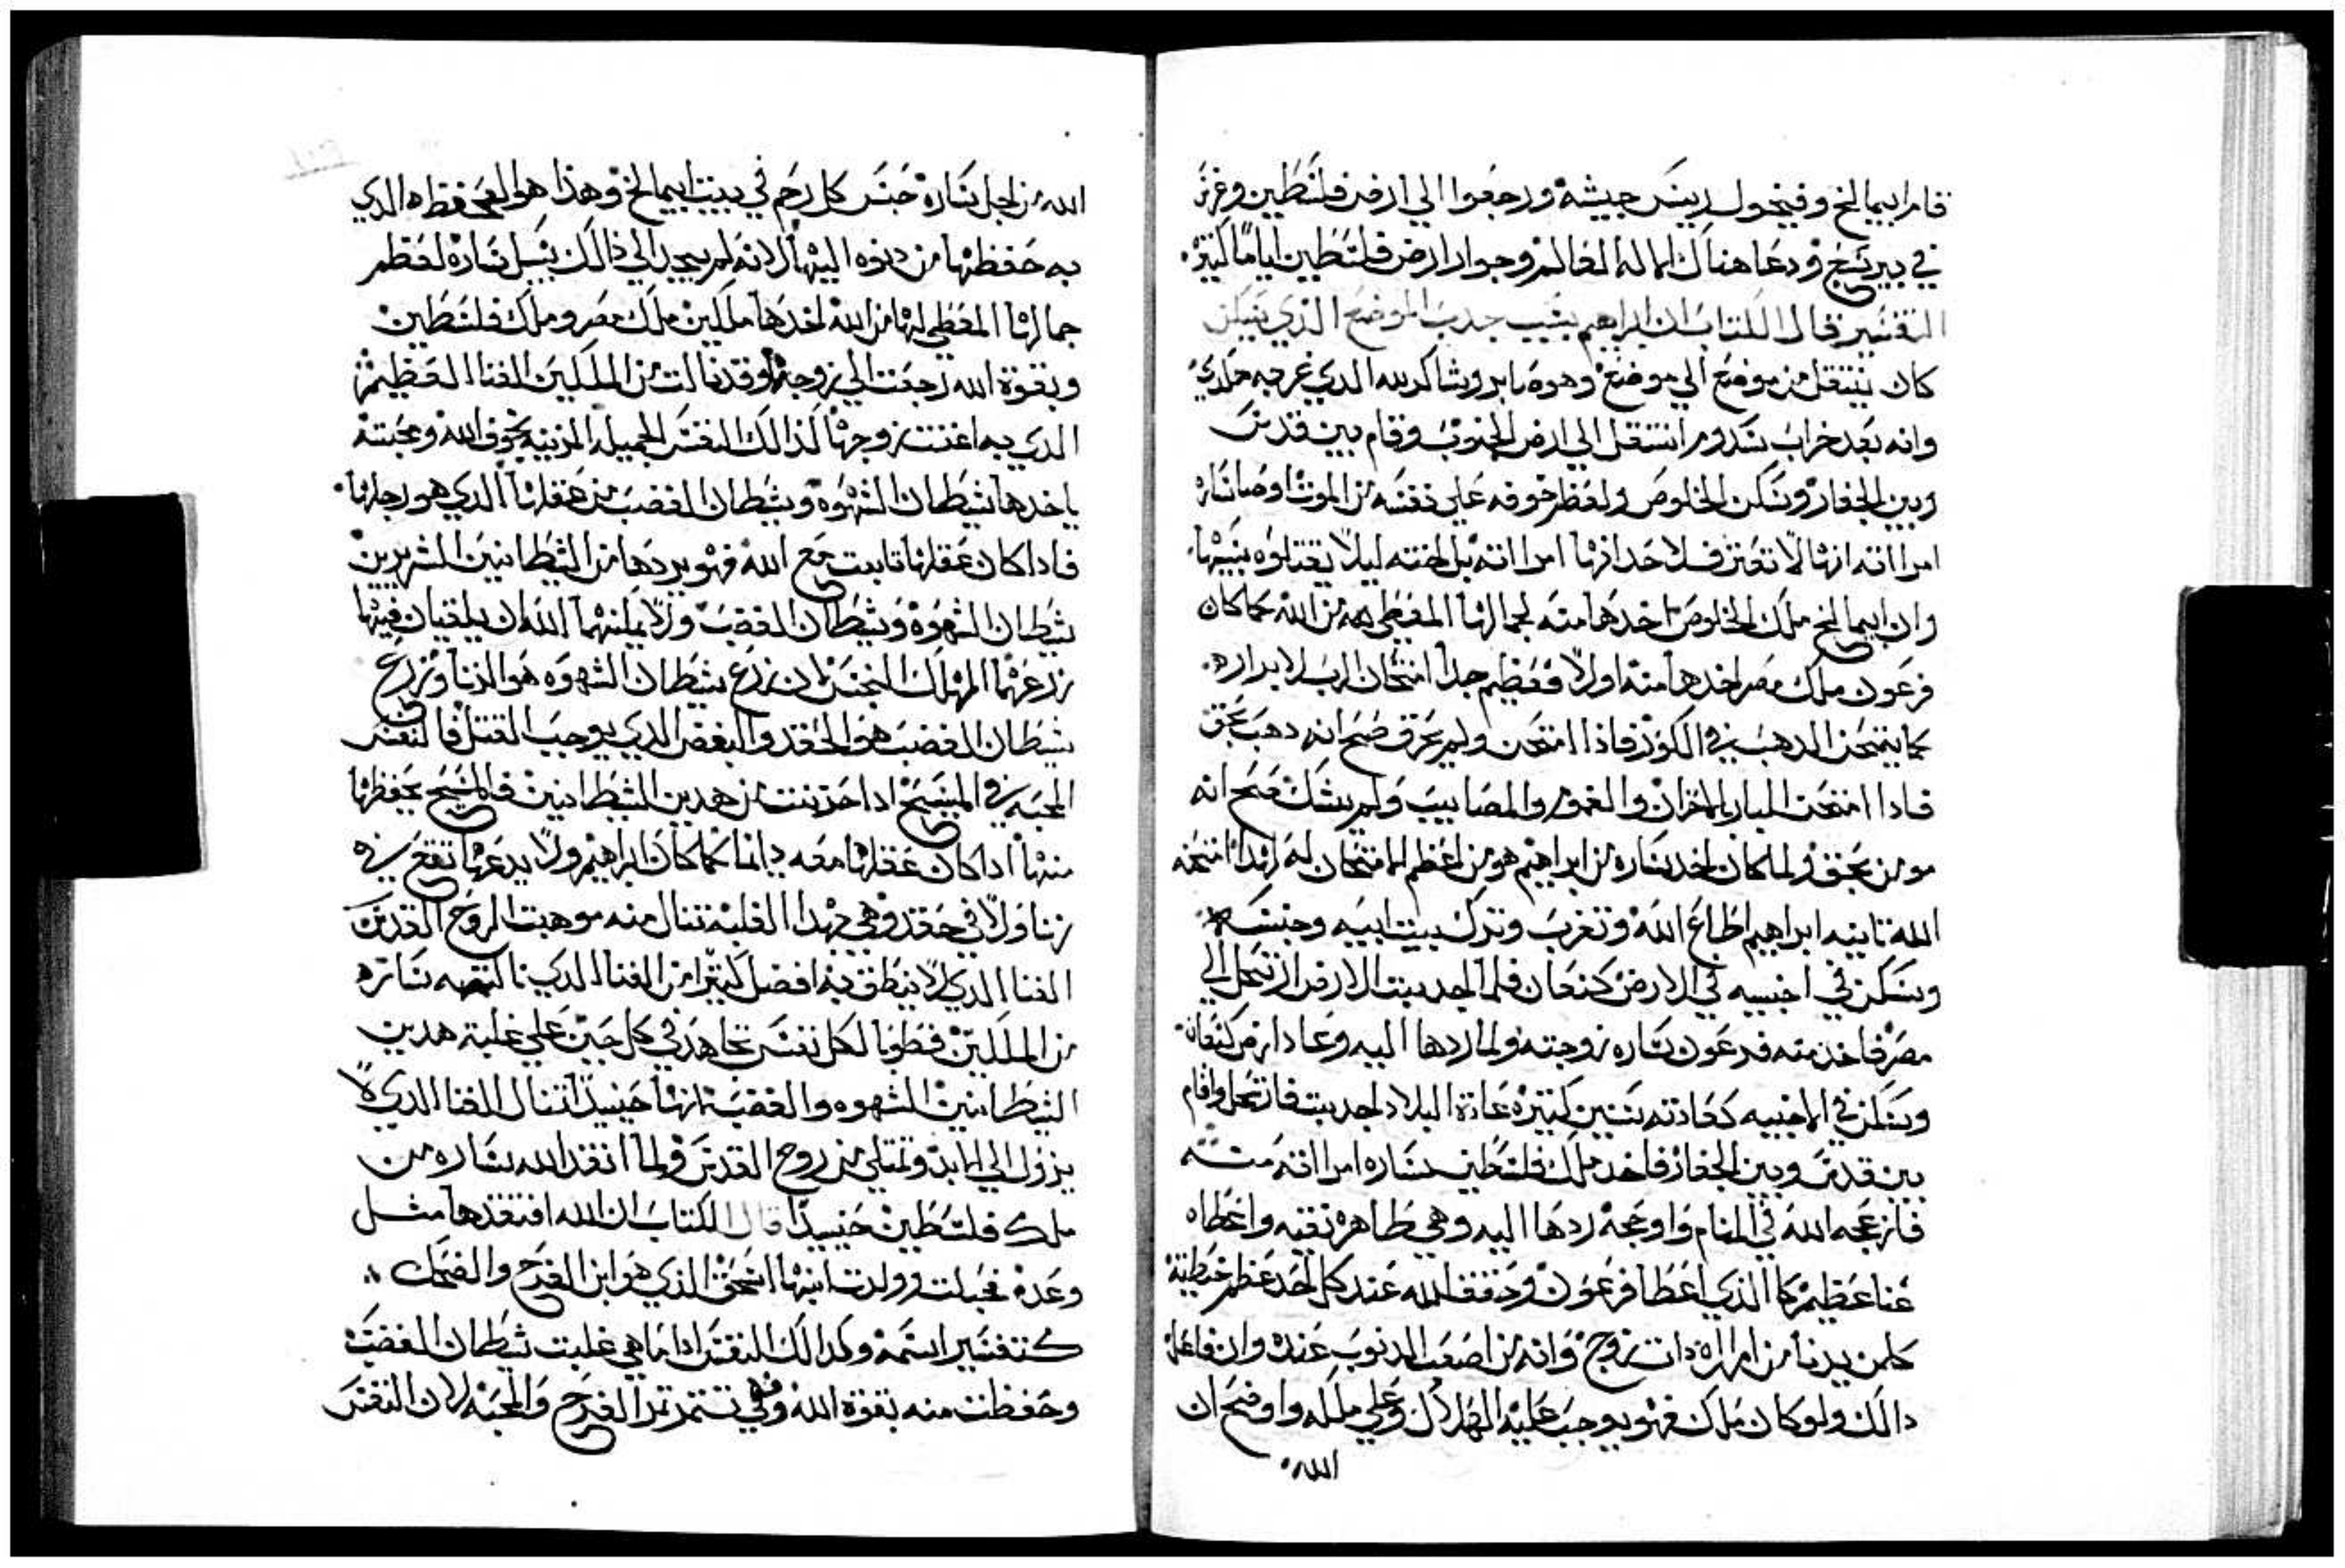 قام ابيمالخ وفيخول ريس جيشه ورجعوا الي ارض فلسطين وغرس
في بير سبع ودعا هناك اسم الاله العالم وجوار ارض فلسطين اياما كتيره
التفسير قال الكتاب ان ابراهيم بسبب جدب الموضع الذي يسكن
كان ينتقل من موضع الي موضع وهو صابر وشاكر لله الدي غربه
وانه بعد خراب سدوم انتقل الي ارض الجنوب وقام بين قدس
وبين الجفار وسكن الخلوص ولعظم خوفه علي نفسه من الموت اوصا ساره
امراته انها لا تعترف لاحد انها امراته بل اخته ليلا يقتلوه بسببها
وان ابيمالخ ملك الخلوص اخدها منه لجمالها المعطي لها من الله كما كان
فرعون ملك مصر اخدها منه اولا فعظيم جدا امتحان الرب لابراره
كما يمتحن الدهب في الكور فاذا امتحن ولم يحرق صح انه دهب بحق
فادا امتحن البار بالاحزان والغموم والمصايب ولم يشك صح انه
مومن بحق ولما كان اخد ساره من ابراهيم هو من اعظم الامتحان له امتحنه
الله تانيه ابراهيم اطاع الله وتغرب وترك بيت ابيه وجنسه
وسكن في اخبيه في الارض كنعان فلما اجدبت الارض ارتحل الي
مصر فاخد منه فرعون ساره زوجته ولما ردها اليه وعاد ارض كنعان
وسكن في الاخبيه كعادته سنين كتيره عادة البلاد اجدبت فارتحل واقام
بين قدس وبين الجفار فاخد ملك فلسطين ساره امراته منه
فازعجه الله في المنام واوجعه ردها اليه وهي طاهره نقيه واعطاه
غنا عظيم كما الذي اعطا فرعون وحقق الله عند كل احد عظم خطية
كلمن يدنا من امراه دات زوج وانه من اصعب الدنوب عنده وان فاعل
دالك ولو كان ملك فهو يوجب عليه الهلاك وعلي ملكه واوضح ان
الله
الله من اجل ساره حبس كل رحم في بيت ابيمالخ وهذا هو الدي
به حفظها من دنوه اليها لانه لم يجد الي ذالك سبيل ساره لعظم
جمالها المعطي لها من الله اخدها ملكين ملك مصر وملك فلسطين
وبقوة الله رجعت الي زوجها وقد نالت من الملكين الغنا العظيم
الدي به اغنت زوجها كذالك النفس الجميله المزينه بخوف الله ومحبته
ياخدها شيطان الشهوه وشيطان الغضب من عقلها الدي هو رجلها
فادا كان عقلها تابت مع الله فهو يردها من الشيطانين الشريرين
شيطان الشهوه وشيطان الغضب ولا يمكنهما الله ان يلقيان فيها
زرعهما المهلك النجس لان زرع شيطان الشهوه هو الزنا وزرع
شيطان الغضب هو الحقد والبغض الدي يوجب القتل فالنفس
المحبه في المسيح ادا حزنت من هدين الشيطانين فالمسيح يحفظها
منها ادا كان عقلها معه دايما كما كان ابراهيم ولا يدعها تقع في
زنا ولا في حقد وهي بهدا الغلبه تنال منه موهبت الروح القدس
الغنا الذي لا ينطق به افضل كتير من الغنا الدي نالته ساره
من الملكين فطوبا لكل نفس تجاهد في كل حين علي غلبة هدين
الشيطانين الشهوه والغضب انها حنيدا تنال الغنا الدي لا
يزول الي الابد وتمتلي من روح القدس ولما انقد الله ساره من
ملك فلسطين حنيدا قال الكتاب ان الله افتقدها مثل
وعده فحبلت وولدت ابنها اسحق الذي هو ابن الفرح والضحك
كتفسير اسمه وكدالك النفس ادا ما هي غلبت شيطان الغضب
وحفظت منه بقوة الله فهي تستمر الفرح والمحبه لان النفس